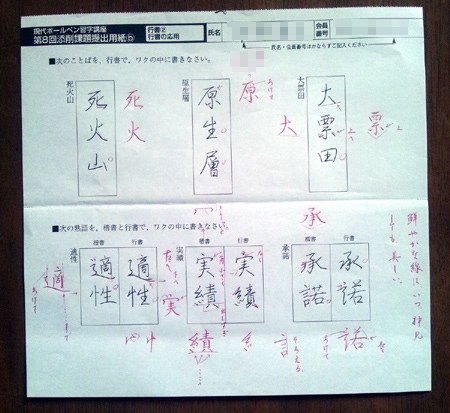 現代ボールペン習字講座
第8回添削課題提出用紙ⓑ
行書②
行書の応用
氏名
会員
番号
氏名・会員番号はかならずご記入ください
■次のことばを、行書で、ワクの中に書きなさい。
大票田
大票田
票
大
原生層
原生層
原
あけて
死火山
死火山
死火
■次の熟語を、楷書と行書で、ワクの中に書きなさい。
承諾
行書
承諾
楷書
承諾
承
諾
あけて
実績
行書
実績
楷書
実績
実
績
適性
行書
適性
楷書
適性
適
あけて
鮮やかな線はいつ拝見
しても美しい